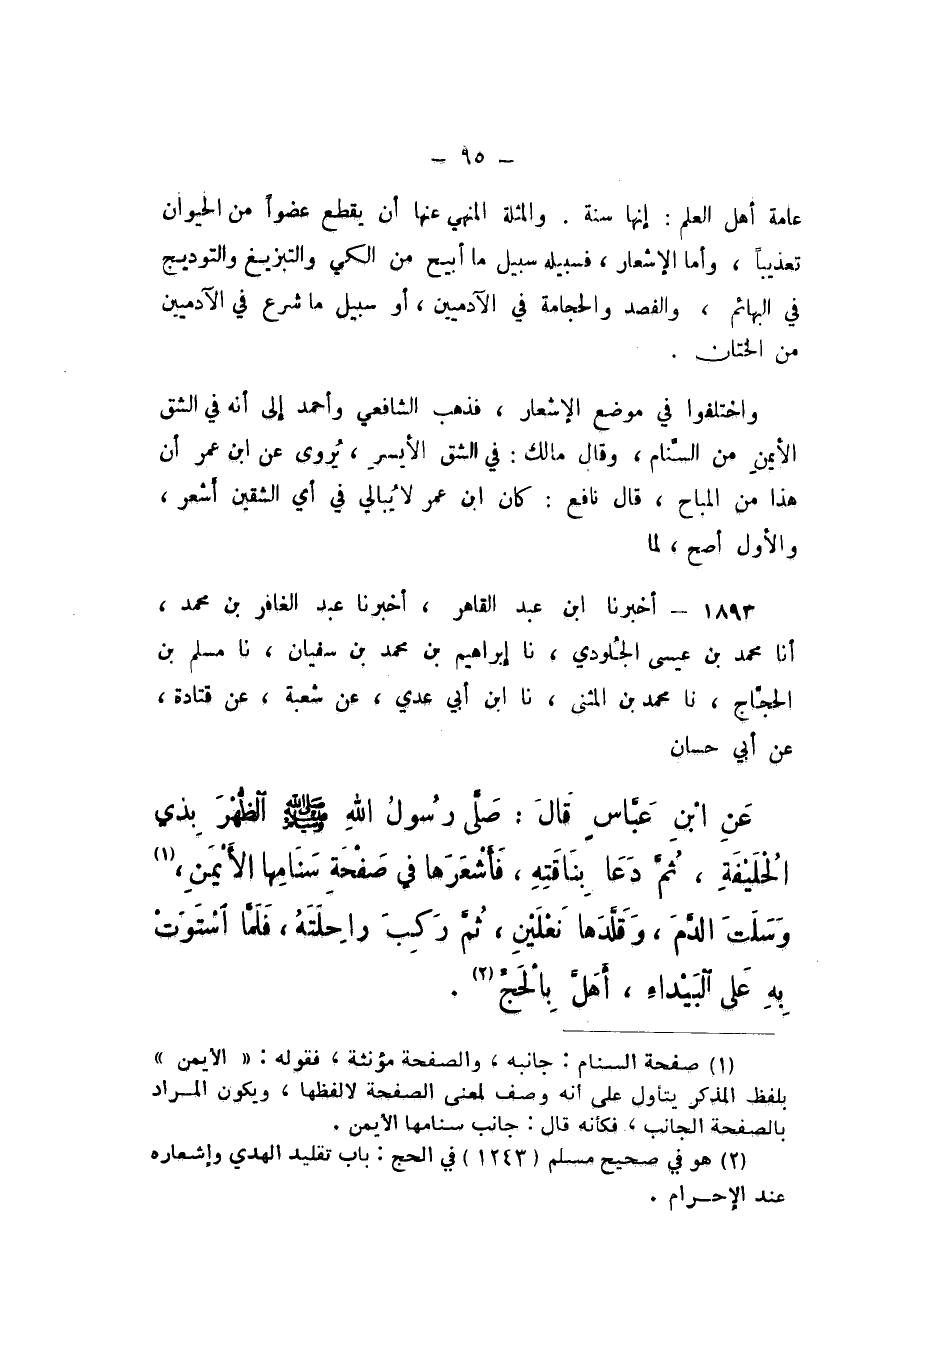 – ٩٥ –
عامة أهل العلم : إنها سنة . والمثلة المنهي عنها أن يقطع عضواً من الحيوان
تعذيباً ، وأما الإشعار ، فسبيله سبيل ما أبيح من الكي والتبزيغ والتوديج
في البهائم ، والفصد والحجامة في الآدميين ، أو سبيل ما شرع في الآدميين
من الختان .
واختلفوا في موضع الإشعار ، فذهب الشافعي وأحمد إلى أنه في الشق
الأيمن من السَّنام ، وقال مالك : في الشق الأيسر ، يُروى عن ابن عمر أن
هذا من المباح ، قال نافع : كان ابن عمر لا يُبالي في أي الشقين أشعر ،
والأول أصح ، لما
١٨٩٣ – أخبرنا ابن عبد القاهر ، أخبرنا عبد الغافر بن محمد ،
أنا محمد بن عيسى الجُلودي ، نا إبراهيم بن محمد بن سفيان ، نا مسلم بن
الحجَّاج ، نا محمد بن المثنى ، نا ابن أبي عدي ، عن شعبة ، عن قتادة ،
عن أبي حسان
عَنِ ابْنِ عَبَّاسٍ قَالَ : صَلَّى رَسُولُ اللهِ ﷺ ٱلظُّهْرَ بِذي
الْحُلَيْفَةِ ، ثُمَّ دَعَا بِنَاقَتِهِ ، فَأَشْعَرَها في صَفْحَةِ سَنَامِها الأَيْمَنِ ،(١)
وَسَلَتَ الدَّمَ ، وَقَلَّدَها نَعْلَيْنِ ، ثُمَّ رَكِبَ راحِلَتَهُ ، فَلَمَّا ٱسْتَوَتْ
بِهِ عَلى ٱلبَيْداءِ ، أَهَلَّ بِالْحَجِّ(٢) .
(١) صفحة السنام : جانبه ، والصفحة مؤنثة ، فقوله : « الأيمن »
بلفظ المذكر يتأول على أنه وصف لمعنى الصفحة لا لفظها ، ويكون المراد
بالصفحة الجانب ، فكأنه قال : جانب سنامها الأيمن .
(٢) هو في صحيح مسلم (١٢٤٣) في الحج : باب تقليد الهدي وإشعاره
عند الإحرام .